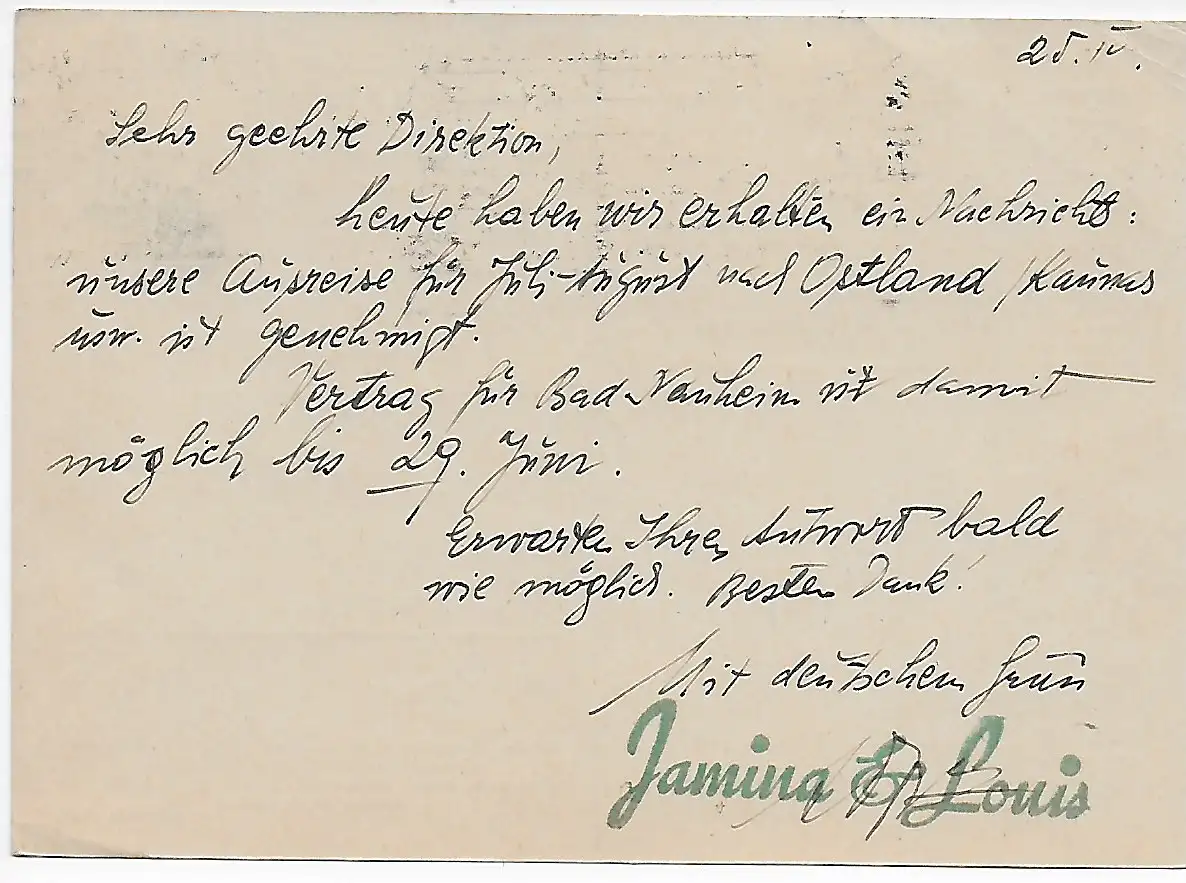 25. IV.
Sehr geehrte Direktion,
heute haben wir erhalten ein Nachricht:
unsere Ausreise für Juli-August nach Ostland /Kaunas
usw. ist genehmigt.
Vertrag für Bad-Nauheim ist damit
möglich bis 29. Juni.
Erwarten Ihren Antwort bald
wie möglich. Besten Dank!
Mit deutschem Gruß
Jamina & Louis